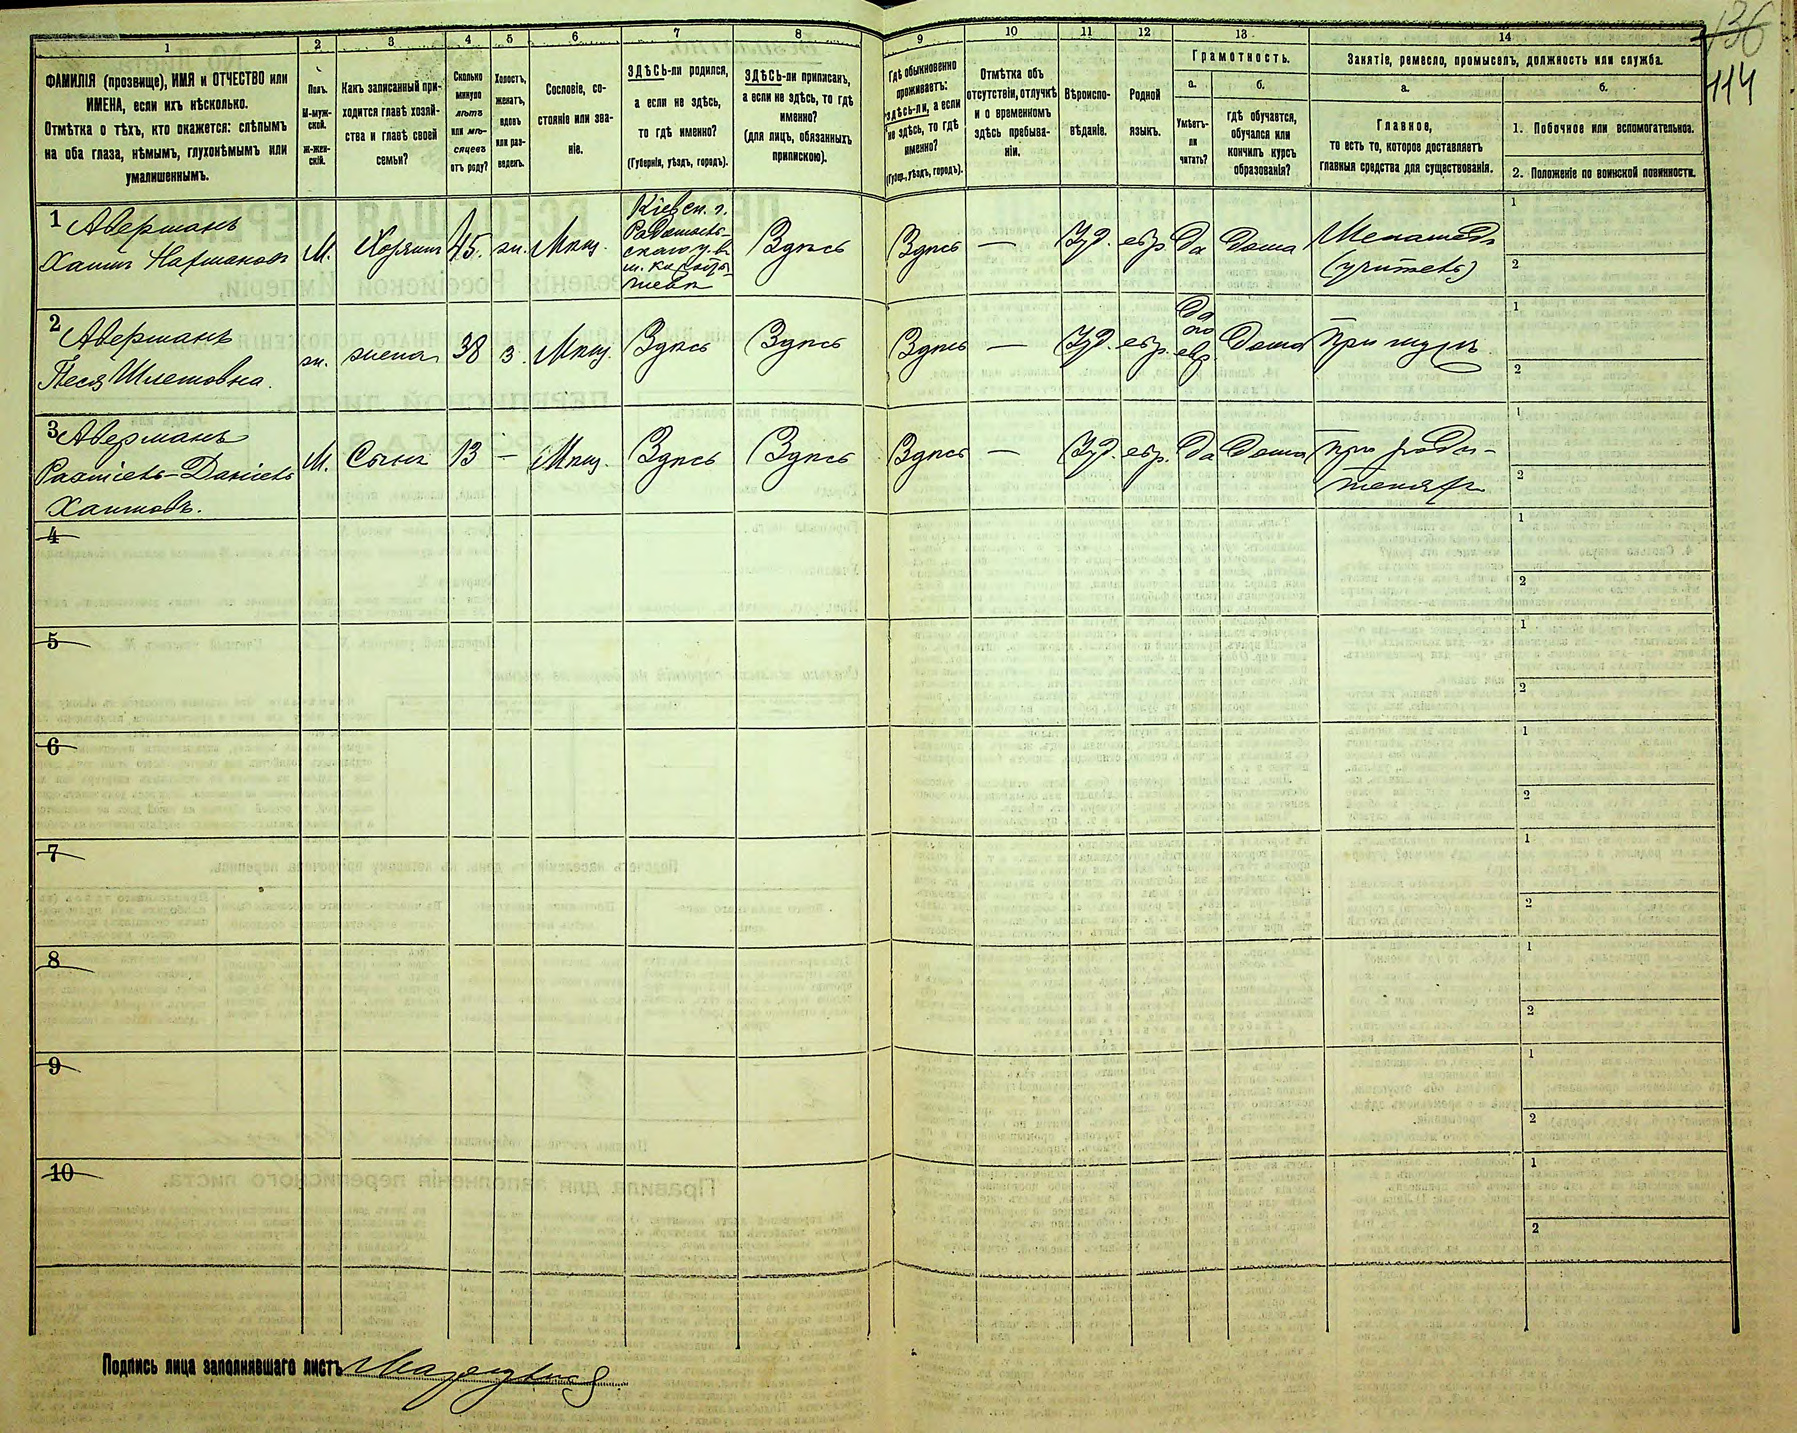 136
114
1
2
3
4
5
6
7
8
9
10
11
12
13
14
ФАМИЛІЯ (прозвище), ИМЯ и ОТЧЕСТВО или
ИМЕНА, если ихъ нѣсколько.
Отмѣтка о тѣхъ, кто окажется: слѣпымъ
на оба глаза, нѣмымъ, глухонѣмымъ или
умалишеннымъ.
Полъ.
М-муж-
ской.
Ж-жен-
скій.
Какъ записанный при-
ходится главѣ хозяй-
ства и главѣ своей
семьи?
Сколько
минуло
лѣтъ
или мѣ-
сяцевъ
отъ роду?
Холостъ,
женатъ,
вдовъ
или раз-
веденъ.
Сословіе, со-
стояніе или зва-
ніе.
ЗДѢСЬ-ли родился,
а если не здѣсь,
то гдѣ именно?
(Губернія, уѣздъ, городъ).
ЗДѢСЬ-ли приписанъ,
а если не здѣсь, то гдѣ
именно?
(для лицъ, обязанныхъ
припискою).
Гдѣ обыкновенно
проживаетъ:
здѣсь-ли, а если
не здѣсь, то гдѣ
именно?
(Губер., уѣздъ, городъ).
Отмѣтка объ
отсутствіи, отлучкѣ
и о временномъ
здѣсь пребыва-
ніи.
Вѣроиспо-
вѣданіе.
Родной
языкъ.
Грамотность.
а.
б.
Умѣетъ-
ли
читать?
гдѣ обучается,
обучался или
кончилъ курсъ
образованія?
Занятіе, ремесло, промыселъ, должность или служба.
а.
б.
Главное,
то есть то, которое доставляетъ
главныя средства для существованія.
1. Побочное или вспомогательное.
2. Положеніе по воинской повинности.
1 Аверманъ
Хаимъ Нахмановъ
М.
Хозяинъ
45.
жн.
Мѣщ.
Кіевск. г.
Радомысль-
скаго у. въ
м.
Здѣсь
Здѣсь
—
Іуд.
евр
Да
Дома
Меламедъ
(учитель)
1
2
2 Аверманъ
Песя Шлемовна.
жн.
жена
38
з.
Мѣщ.
Здѣсь
Здѣсь
Здѣсь
—
Іуд.
евр.
Да
по
евр.
Дома
При мужѣ
1
2
3 Аверманъ
Рахміель-Даніель
Хаимовъ.
М.
Сынъ
13
—
Мѣщ.
Здѣсь
Здѣсь
Здѣсь
—
Іуд.
евр.
Да
Дома
При роди-
теляхъ
1
2
4
1
2
5
1
2
6
1
2
7
1
2
8
1
2
9
1
2
10
1
2
Подпись лица заполнявшаго листъ